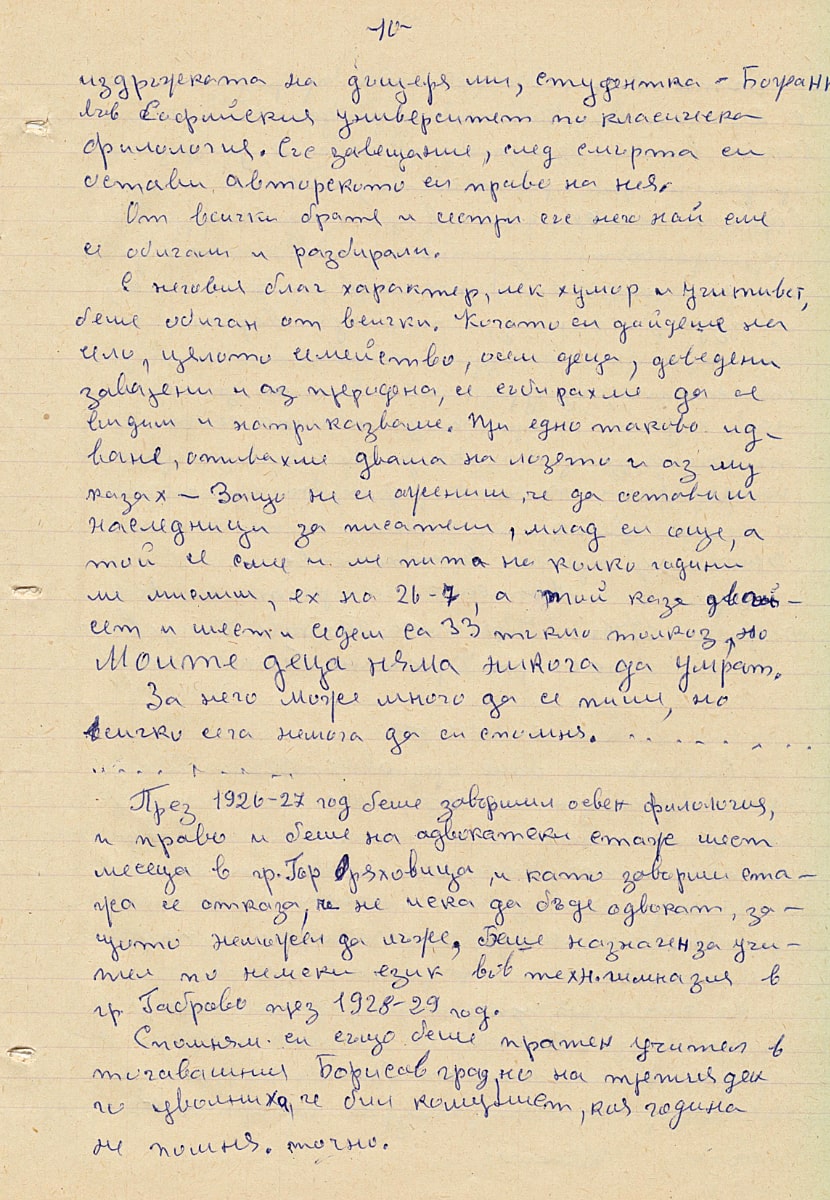 -10-
издръжката на дъщеря ми, студентка - Богдан
във Софийския университет по класическа
филология. Със завещание, след смърта си
остави авторското си право на нея.
От всички братя и сестри със него най сме
се обичали и разбирали.
С неговия благ характер, лек хумор и учтивост,
беше обичан от всички. Когато си дойдеше на
село, цялото семейство, осем деца, доведени
заварени и аз природена, се събирахме да се
видим и наприказваме. При едно таково ид-
ване, отивахме двама на лозето и аз му
казах - Защо не се жениш, че да оставиш
наследници за писатели, млад си още, а
той се смее и ме пита на колко години
ме мислиш, ех на 26-7, а той каза двай-
сет и шест и седем са 33 тъкмо толкоз, но
Моите деца няма никога да умрат.
За него може много да се пише, но
всичко сега немога да си спомня. . . . . . . . . .
. . . . . . . . . .
През 1926-27 год беше завършил освен филология,
и право и беше на адвокатски стаж шест
месеца в гр. Гор Оряховица, и като завърши ста-
жа се отказа, че не иска да бъде адвокат, за-
щото неможел да лъже. Беше назначен за учи-
тел по немски език във техн. гимназия в
гр. Габрово през 1928-29 год.
Спомням си също беше пратен учител в
тогавашния Борисовград, но на третия ден
го уволниха, че бил комунист, коя година
не помня. точно.